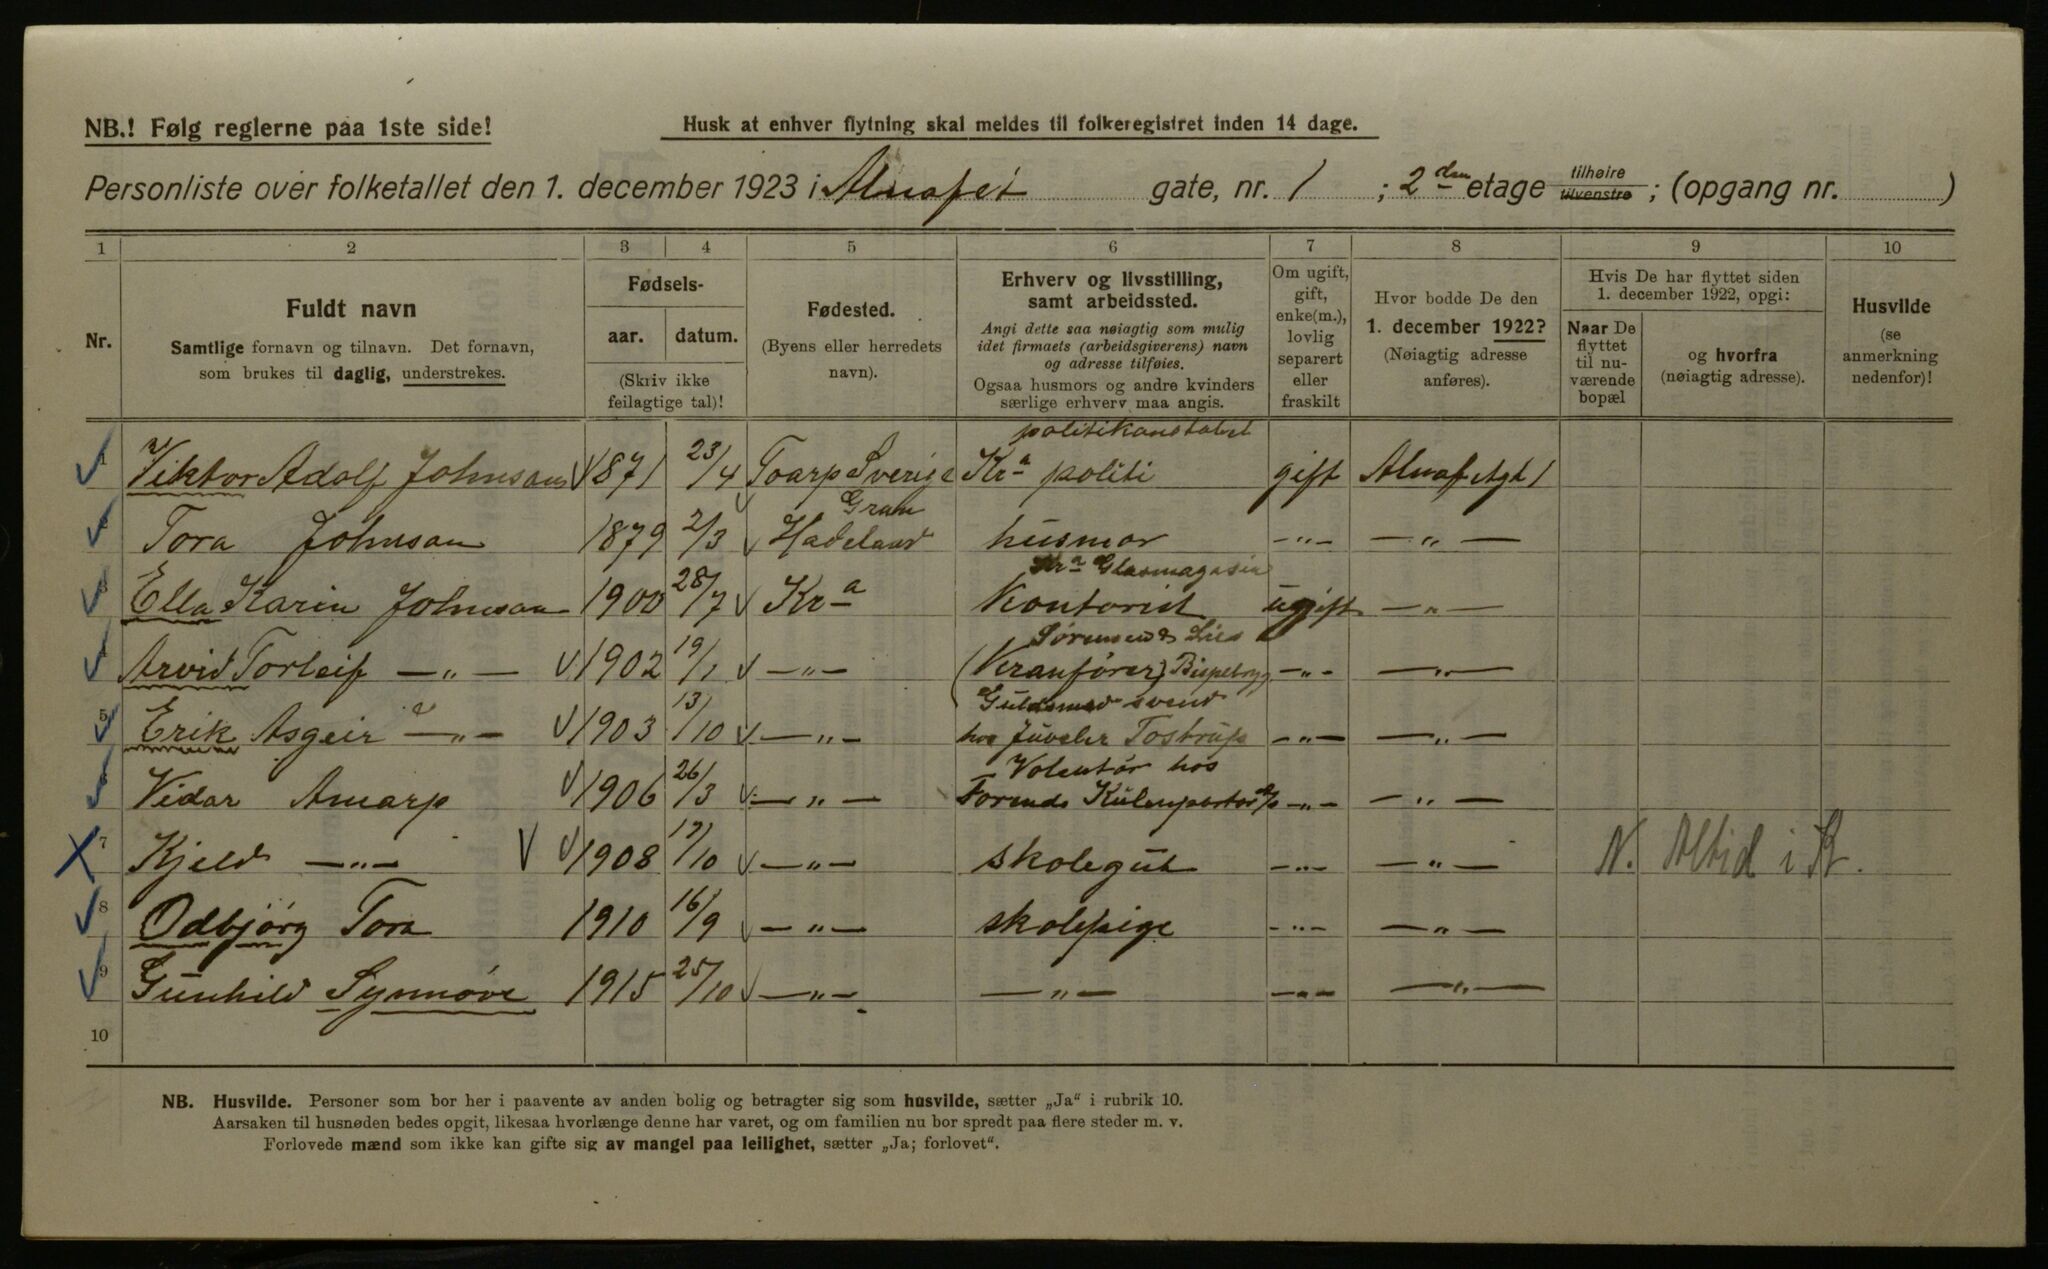 NB.! Følg reglerne paa 1ste side!
Husk at enhver flytning skal meldes til folkeregistret inden 14 dage.
Personliste over folketallet den 1. december 1923 i Alnafet gate, nr. 1 ; 2den etage tilhøire tilvenstre ; (opgang nr. )
1 2 3 4 5 6 7 8 9 10
Nr.
Fuldt navn
Samtlige fornavn og tilnavn. Det fornavn,
som brukes til daglig, understrekes.
Fødsels-
aar. datum.
(Skriv ikke
feilagtige tal)!
Fødested.
(Byens eller herredets
navn).
Erhverv og livsstilling,
samt arbeidssted.
Angi dette saa nøiagtig som mulig
idet firmaets (arbeidsgiverens) navn
og adresse tilføies.
Ogsaa husmors og andre kvinders
særlige erhverv maa angis.
Om ugift,
gift,
enke(m.),
lovlig
separert
eller
fraskilt
Hvor bodde De den
1. december 1922?
(Nøiagtig adresse
anføres).
Hvis De har flyttet siden
1. december 1922, opgi:
Naar De
flyttet
til nu-
værende
bopæl
og hvorfra
(nøiagtig adresse).
Husvilde
(se
anmerkning
nedenfor)!
politikonstabel
1 Viktor Adolf Johnsan 1871 23/4 Toarp Sverige Kra politi gift Alnafetgt 1
Gran
2 Tora Johnsan 1879 2/3 Hadeland husmor -"- -"-
Kra Glasmagasin
3 Ella Karin Johnsan 1900 28/7 Kra Kontorist ugift -"-
Sørensen &
4 Arvid Torleif -"- 1902 19/1 -"- (Kranfører) Bispebrygg -"- -"-
Guldsmed svend
5 Erik Asgeir -"- 1903 13/10 -"- hos Juveler Tostrup -"- -"-
Volentør hos
6 Vidar Amarp 1906 26/3 -"- Kulimportør -"- -"-
7 Kjeld -"- 1908 17/10 -"- skolegut -"- -"- N. Altid i K.
8 Odbjørg Tora 1910 16/9 -"- skolepige -"- -"-
9 Gunhild Synnøve 1915 25/10 -"- -"- -"- -"-
10
NB. Husvilde. Personer som bor her i paavente av anden bolig og betragter sig som husvilde, sætter „Ja“ i rubrik 10.
Aarsaken til husnøden bedes opgit, likesaa hvorlænge denne har varet, og om familien nu bor spredt paa flere steder m. v.
Forlovede mænd som ikke kan gifte sig av mangel paa leilighet, sætter „Ja; forlovet“.